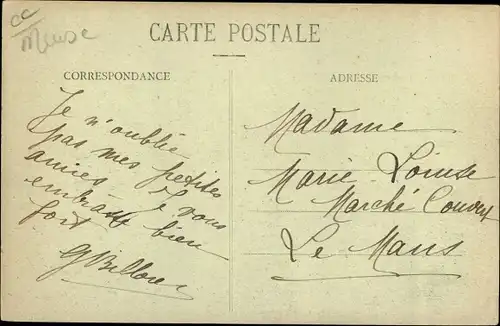 cc
Meuse
CARTE POSTALE
CORRESPONDANCE
ADRESSE
Je n'oublie
pas mes petites
amies Je vous
embrasse bien
fort
Madame
Marie Louise
Marché Couvert
Le Mans